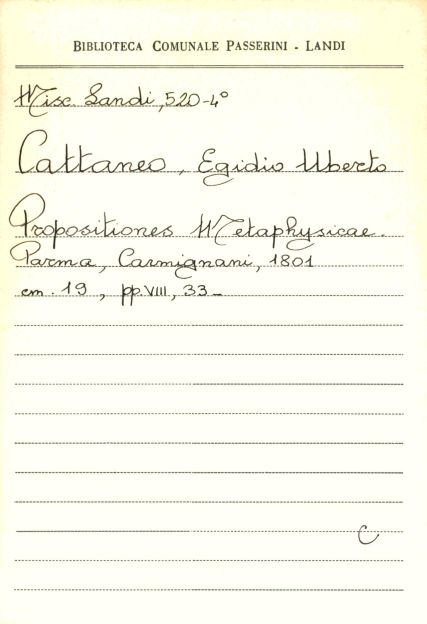 BIBLIOTECA COMUNALE PASSERINI - LANDI
Misc. Landi, 520-4°
Cattaneo, Egidio Uberto
Propositiones Metaphysicae.
Parma, Carmignani, 1801
cm. 19, pp. VIII, 33_
C